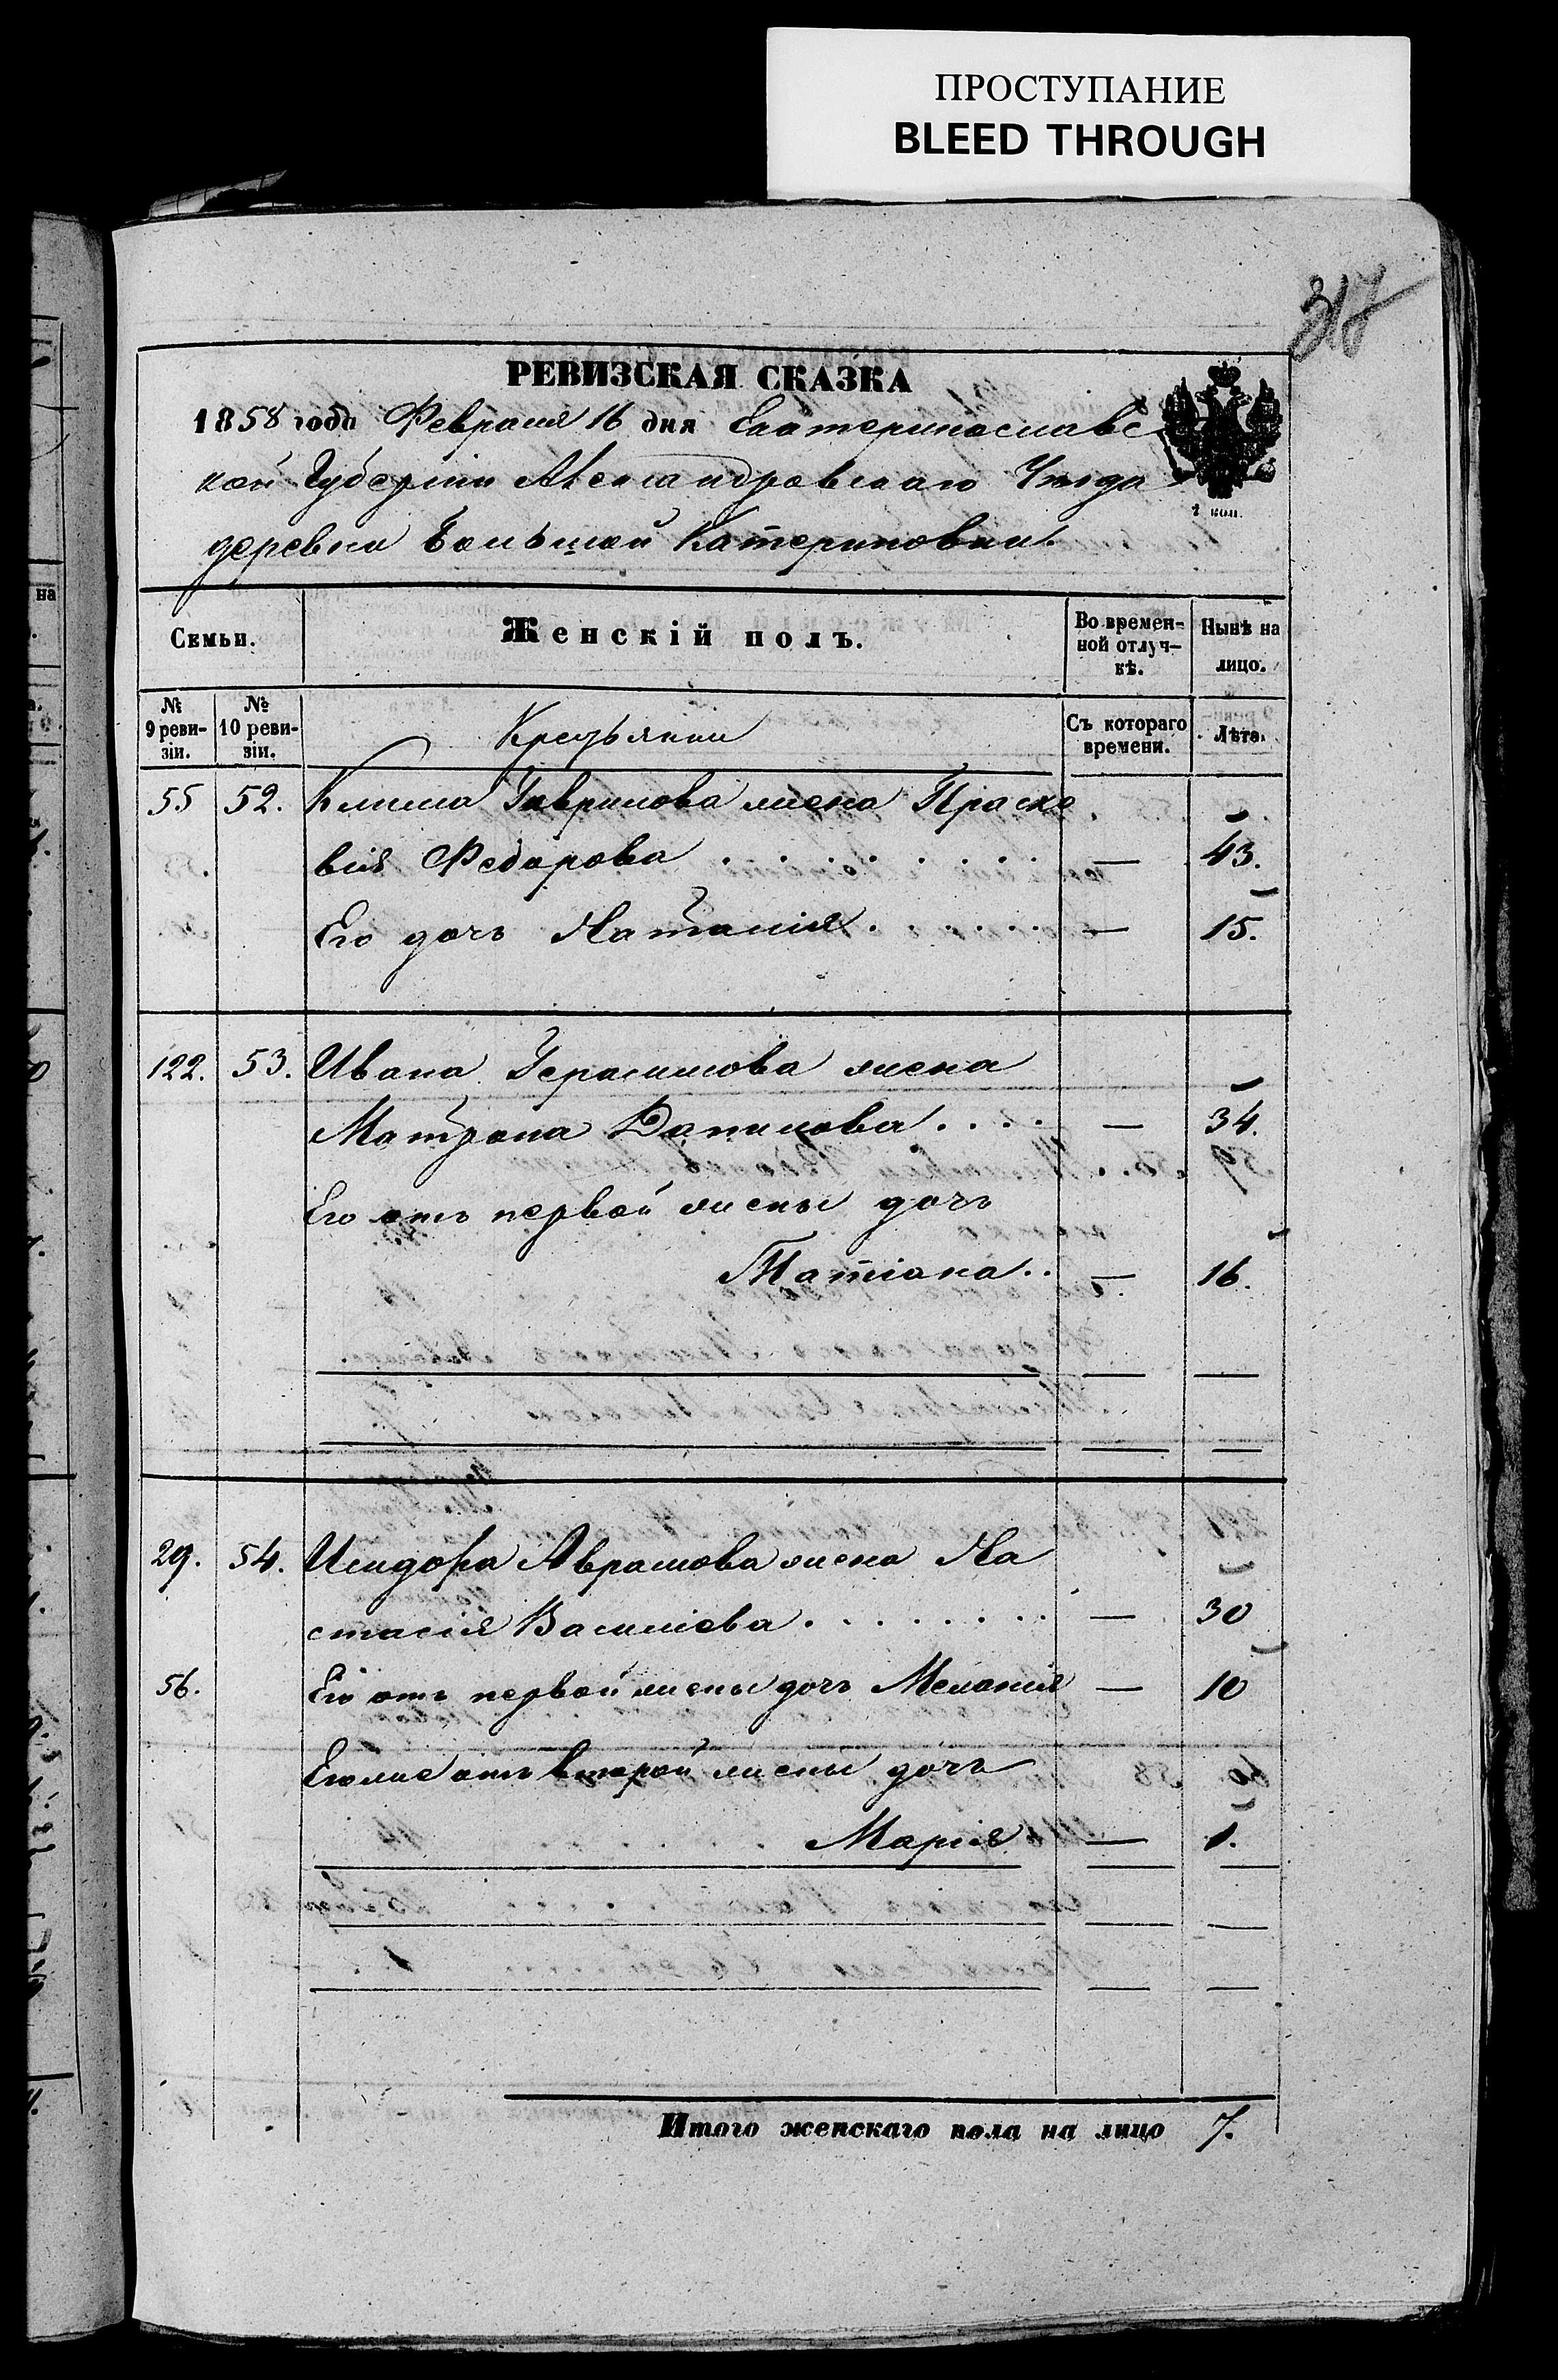 ПРОСТУПАНИЕ
BLEED THROUGH
317
РЕВИЗСКАЯ СКАЗКА
1858 года Февраля 16 дня Екатеринославс
кой Губерніи Александровскаго Уезда
деревни Большой Катериновки.
1 коп.
Семьи. Женскій полъ. Во времен-ной отлуч-кѣ. Нынѣ на лицо.
№ 9 реви-зіи. № 10 реви-зіи. Крестьянки Съ котораго времени. Лѣта.
55 52. Клима Гаврилова жена Праско
вія Федорова . . . . . . . — 43.
Его дочь Наталія . . . . . . — 15.
122. 53. Ивана Герасимова жена
Матрона Данилова . . . . — 34.
Его отъ первой жены дочь
Татіана . . — 16.
29. 54. Исидора Аврамова жена На
стасія Василіева . . . . . . . . — 30
56. Его отъ первой жены дочь Меланія — 10
Его же отъ второй жены дочь
Марія — 1.
Итого женскаго пола на лицо 7.